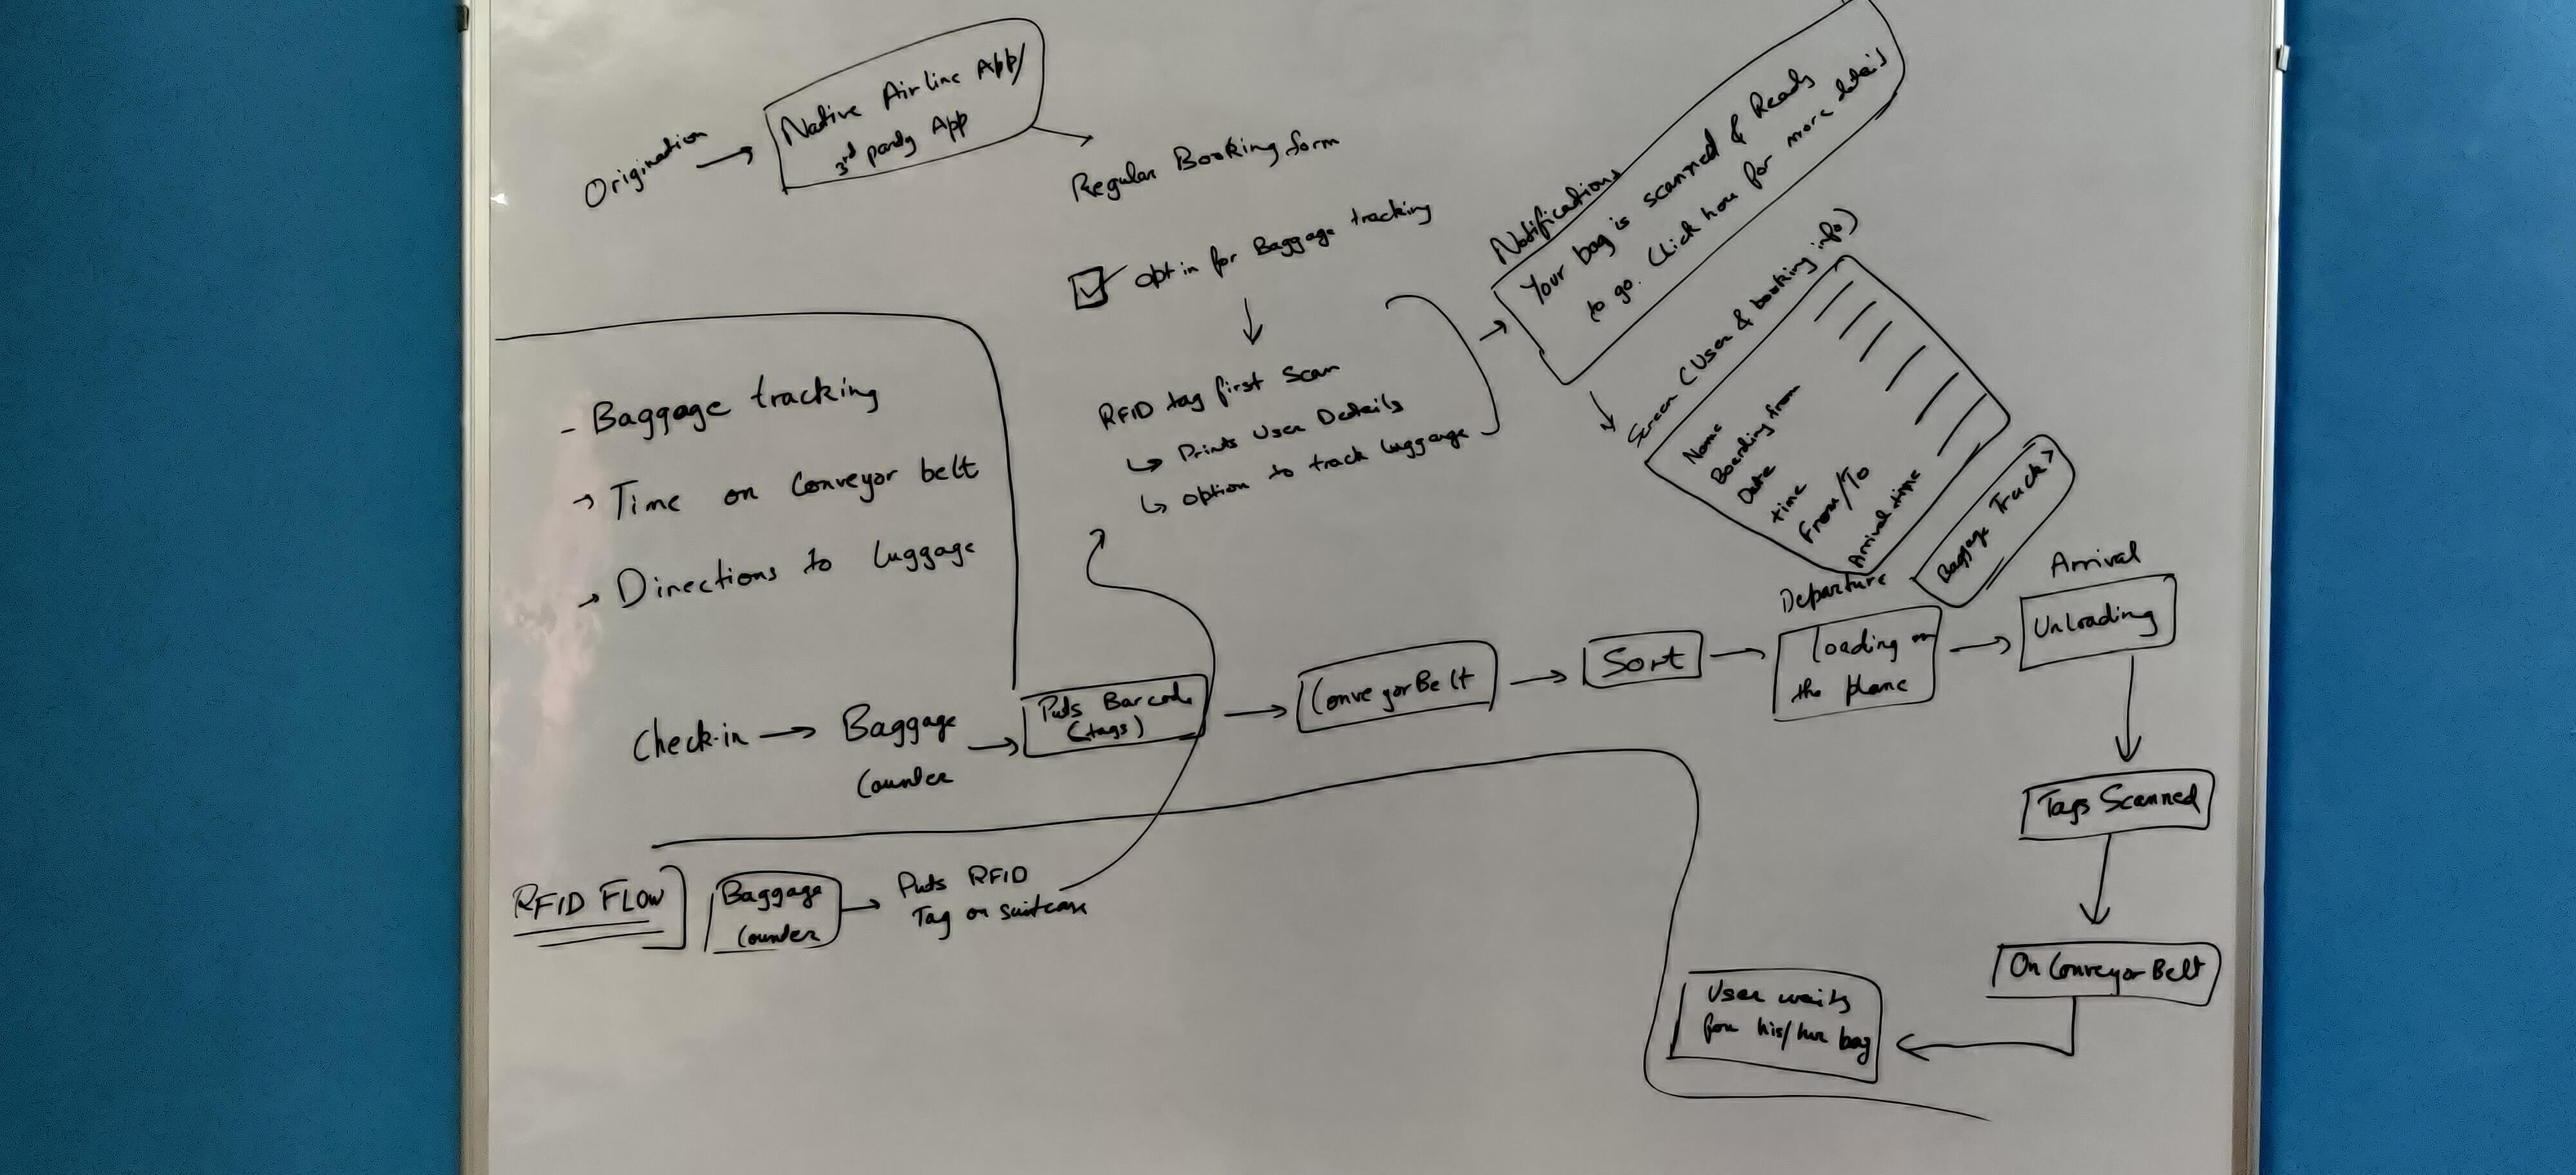 Origination
Native Airline App/
3rd party App
Regular Booking form
Opt in for Baggage tracking
RFID tag first Scan
Prints User Details
Option to track luggage
Notifications
Your bag is scanned & Ready
to go. Click here for more details
Screen (User & booking info)
Name
Boarding from
Date
time
From/To
Arrival time
Baggage Track >
- Baggage tracking
→ Time on Conveyor belt
→ Directions to Luggage
Check-in → Baggage
Counter
Puts Barcode
(tags)
Conveyor Belt
Sort
Departure
Loading on
the plane
Arrival
Unloading
Tags Scanned
On Conveyor Belt
User waits
for his/her bag
RFID FLOW
Baggage
Counter
Puts RFID
Tag on suitcase